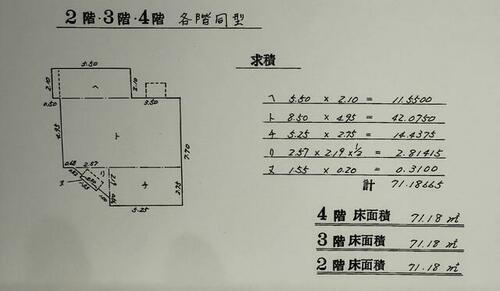 2階・3階・4階 各階同型
求積
ヘ 5.50 × 2.10 = 11.5500
ト 8.50 × 4.95 = 42.0750
チ 5.25 × 2.75 = 14.4375
リ 2.57 × 2.19 × 1/2 = 2.81415
ヌ 1.55 × 0.20 = 0.3100
計 71.18665
4階 床面積 71.18 ㎡
3階 床面積 71.18 ㎡
2階 床面積 71.18 ㎡
5.50
2.10
ヘ
2.10
0.50
2.50
4.95
ト
7.70
0.68 2.57
リ
ヌ
チ
2.75
5.25